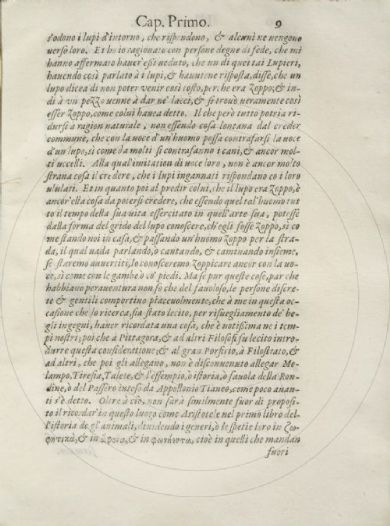 Cap. Primo. 9
s'odono i lupi d'intorno, che rispondono, & alcuni ne uengono
uerso loro. Et ho io ragionato con persone degne di fede, che mi
hanno affermato hauer essi ueduto, che un di quei tai Lupieri,
hauendo così parlato à i lupi, & hauutene risposta, disse, che un
lupo dicea di non poter venir così tosto, per che era Zoppo, & in-
di à vn pezzo uenne à dar ne' lacci, & si trouò ueramente così
esser Zoppo, come colui hauea detto. Il che però tutto potria ri-
dursi à ragion naturale, non essendo cosa lontana dal creder
commune, che con la uoce d'un huomo possa contrafarsi la uoce
d'un lupo, sì come da molti si contrafanno i cani, & ancor mol-
ti uccelli. Alla qual'imitation di uoce loro, non è ancor molto
strana cosa il credere, che i lupi ingannati rispondano co i loro
ululati. Et in quanto poi al predir colui, che il lupo era Zoppo, è
ancor'ella cosa da potersi credere, che essendo quel tal'huomo tut-
to il tempo della sua uita essercitato in quell'arte sua, potesse
dalla forma del grido del lupo conoscere, ch'egli fosse Zoppo, sì co
me stando noi in casa, & passando un'huomo Zoppo per la stra-
da, il qual uada parlando, ò cantando, & caminando insieme,
se staremo auuertiti, lo conosceremo Zoppicare ancor con la uo-
ce, sì come con le gambe ò co' piedi. Ma se pur queste cose, par che
habbiano per auentura non so che del fauoloso, le persone discre-
te & gentili comportino piaceuolmente, che à me in questa oc-
casione che lo ricerca, sia stato lecito, per risuegliamento de' be-
gli ingegni, hauer ricordata una cosa, che è notissima ne i tem-
pi nostri; poi che à Pittagora, & ad altri Filosofi fu lecito intro-
durre questa consideratione; & al gran Porfirio, à Filostrato, &
ad altri, che poi gli allegano, non è disconuenuto allegar Me-
lampo, Tiresia, Talete, & l'essempio, ò istoria, ò fauola della Ron-
dine, ò del Passero inteso da Appollonio Tianeo, come poco auan-
ti s'è detto. Oltre à ciò, non sarà similmente fuor di proposi-
to il ricordar'in questo luogo come Aristotele nel primo libro del-
l'istoria de gli animali, diuidendo i generi, ò le spetie loro in
& in & in cioè in quelli che mandan
fuori